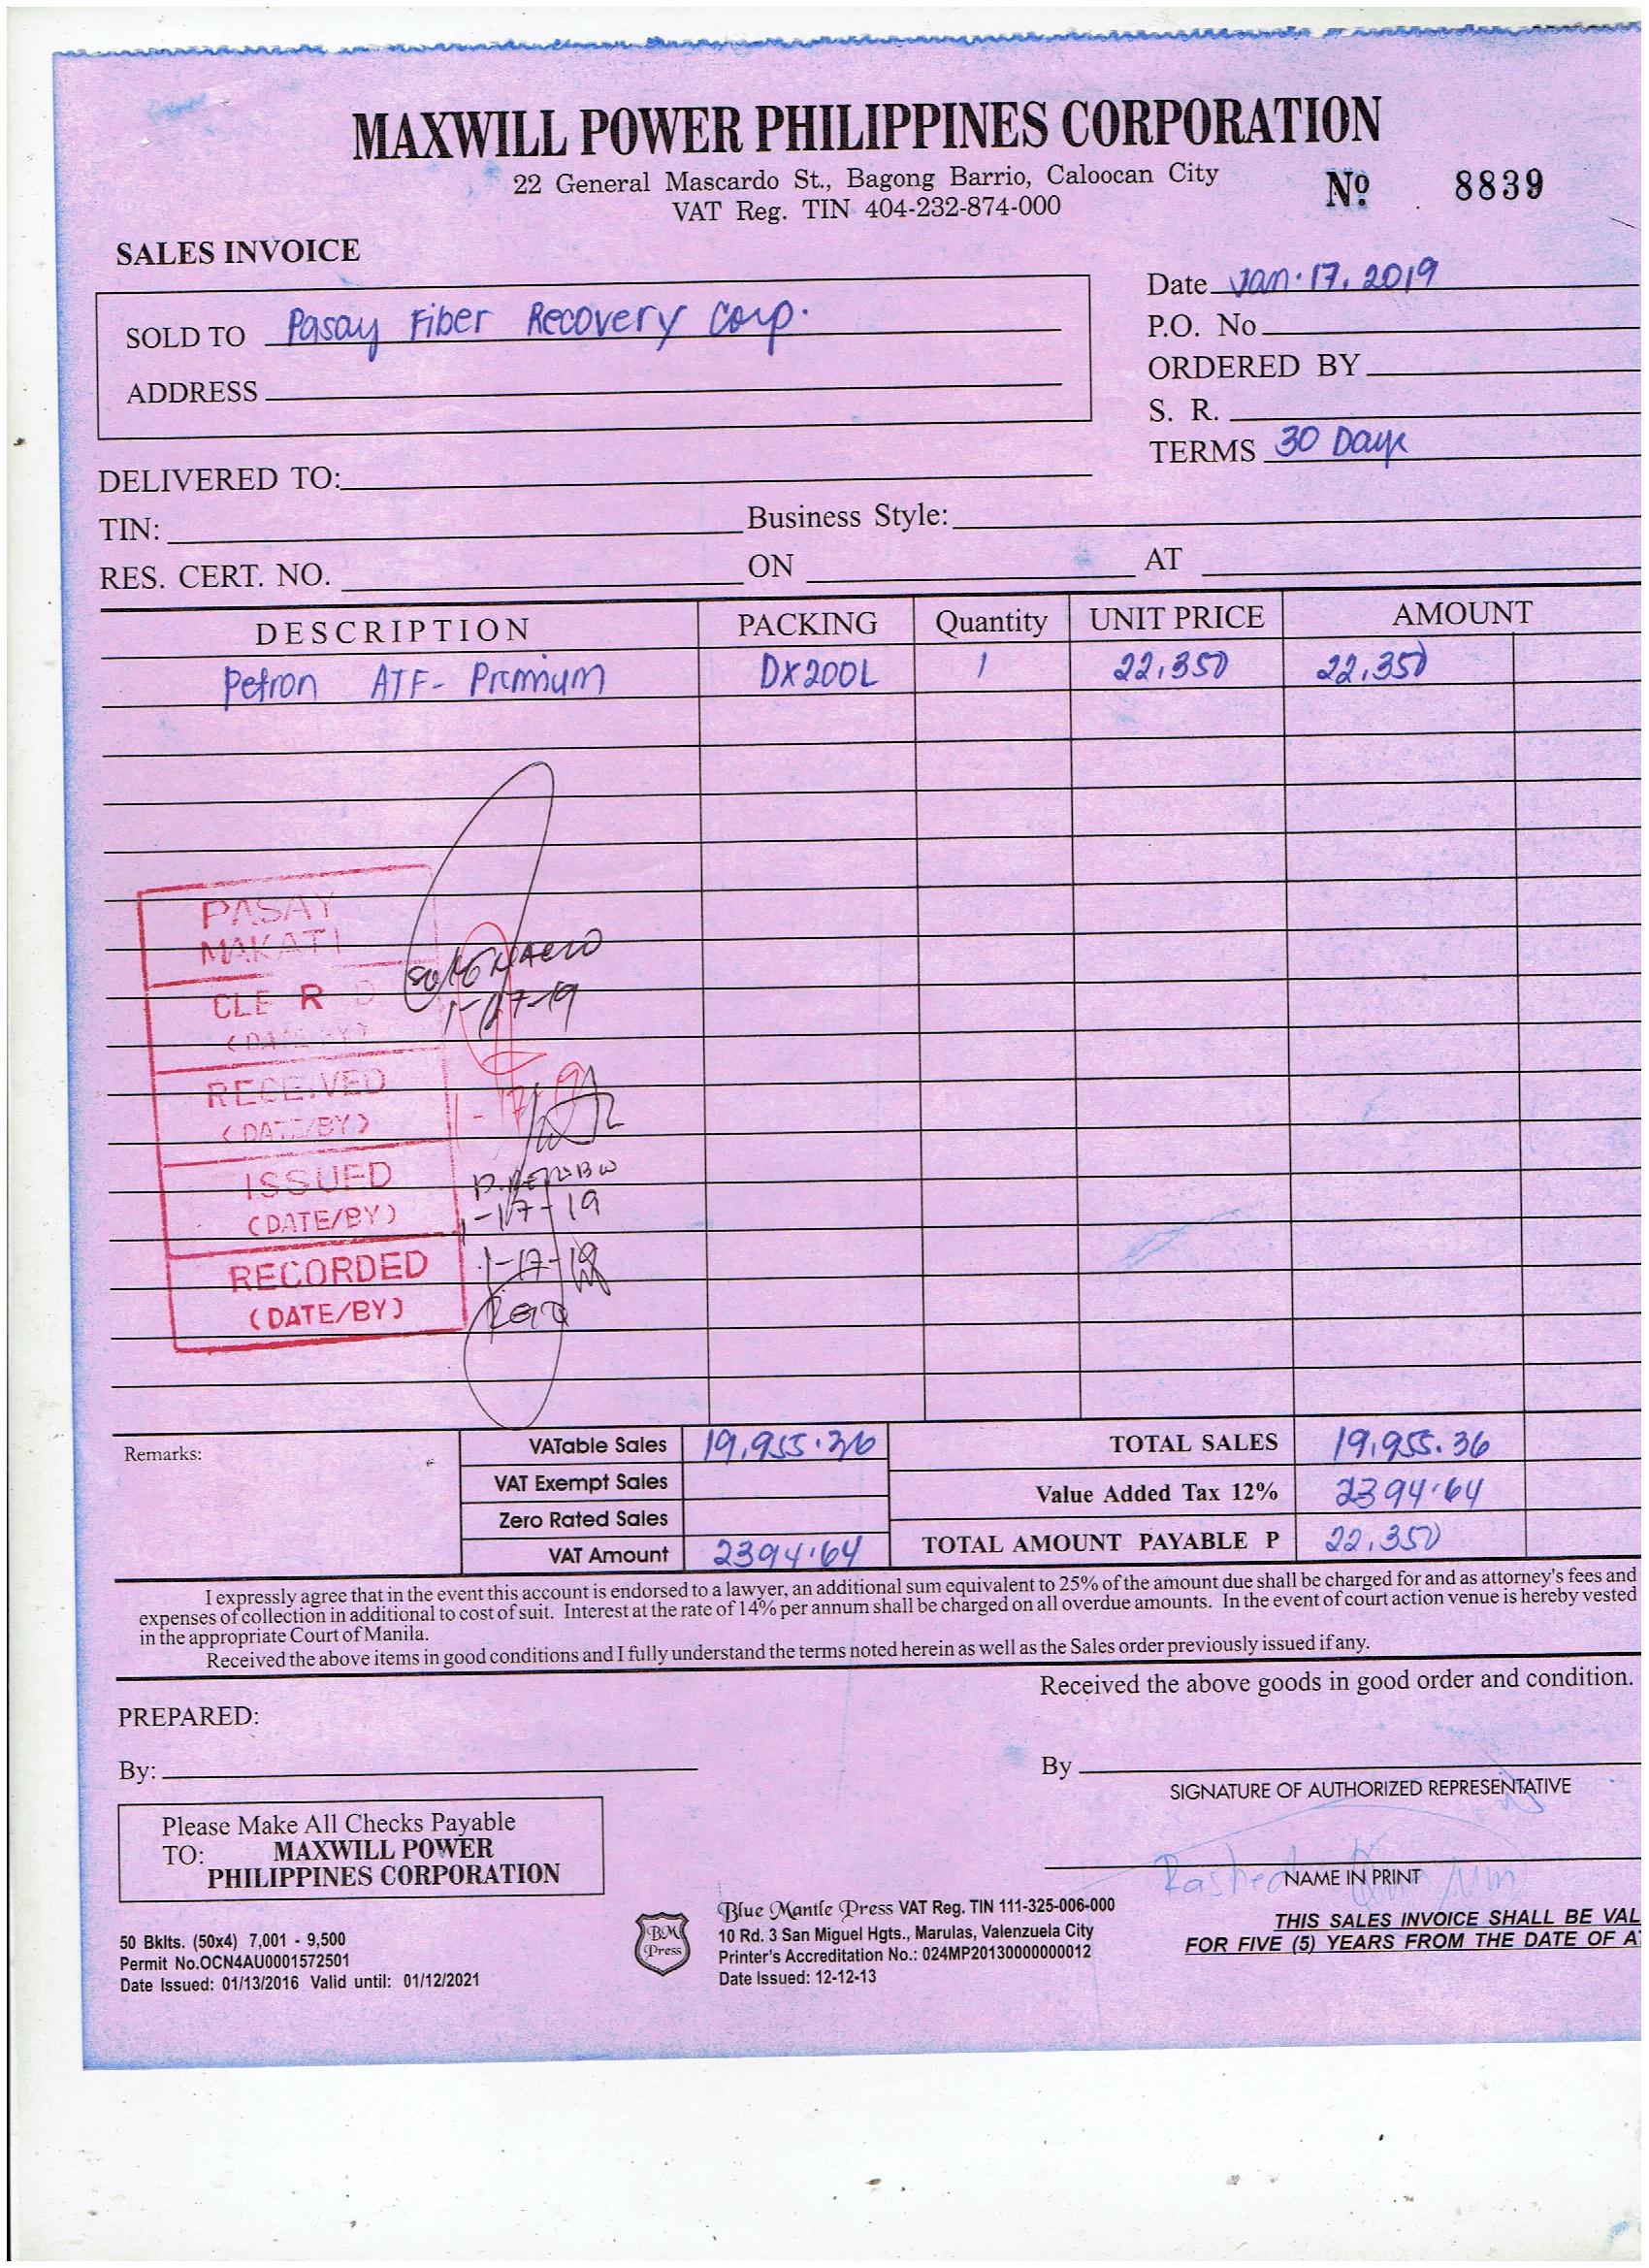 MAXWILL POWER PHILIPPINES CORPORATION
22 General Mascardo St., Bagong Barrio, Caloocan City
VAT Reg. TIN 404-232-874-000
Nº 8839
SALES INVOICE
Date Jan. 17, 2019
SOLD TO Pasay Fiber Recovery Corp.
P.O. No
ORDERED BY
ADDRESS
S. R.
TERMS 30 Days
DELIVERED TO:
TIN: Business Style:
RES. CERT. NO. ON AT
DESCRIPTION PACKING Quantity UNIT PRICE AMOUNT
Petron ATF- Premium DX200L 1 22,350 22,350
PASAY
MAKATI
CLE R D
(DATE/BY)
1-17-19
RECEIVED
(DATE/BY)
1-17-19
ISSUED
(DATE/BY)
1-17-19
RECORDED
(DATE/BY)
1-17-19
Remarks:
VATable Sales 19,955.36 TOTAL SALES 19,955.36
VAT Exempt Sales
Value Added Tax 12% 2394.64
Zero Rated Sales
VAT Amount 2394.64 TOTAL AMOUNT PAYABLE P 22,350
I expressly agree that in the event this account is endorsed to a lawyer, an additional sum equivalent to 25% of the amount due shall be charged for and as attorney's fees and
expenses of collection in additional to cost of suit. Interest at the rate of 14% per annum shall be charged on all overdue amounts. In the event of court action venue is hereby vested
in the appropriate Court of Manila.
Received the above items in good conditions and I fully understand the terms noted herein as well as the Sales order previously issued if any.
Received the above goods in good order and condition.
PREPARED:
By:
By
SIGNATURE OF AUTHORIZED REPRESENTATIVE
Please Make All Checks Payable
TO: MAXWILL POWER
PHILIPPINES CORPORATION
NAME IN PRINT
50 Bklts. (50x4) 7,001 - 9,500
Permit No.OCN4AU0001572501
Date Issued: 01/13/2016 Valid until: 01/12/2021
BM
Press
Blue Mantle Press VAT Reg. TIN 111-325-006-000
10 Rd. 3 San Miguel Hgts., Marulas, Valenzuela City
Printer's Accreditation No.: 024MP20130000000012
Date Issued: 12-12-13
THIS SALES INVOICE SHALL BE VAL
FOR FIVE (5) YEARS FROM THE DATE OF A